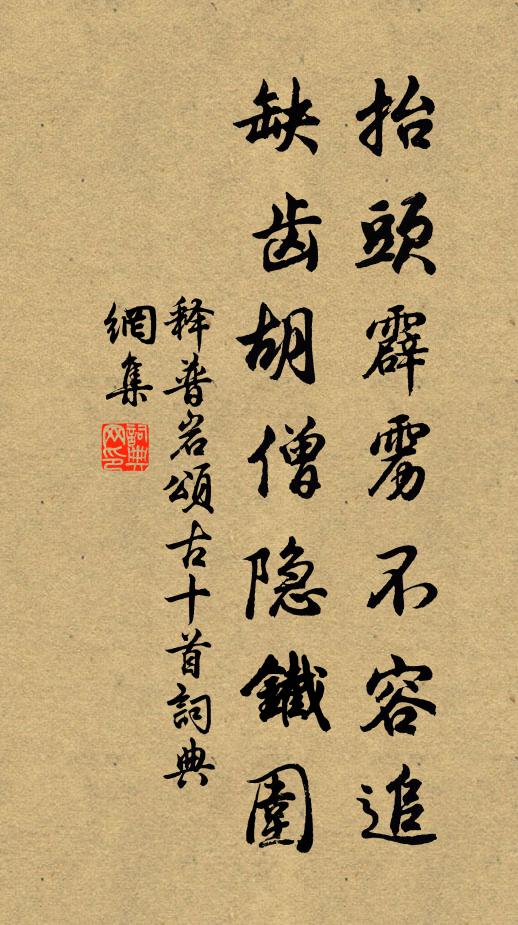 抬頭霹雳不容追
缺齿胡僧隐鐵圍
释普岩頌古十首詞典
網集
詞典
网印